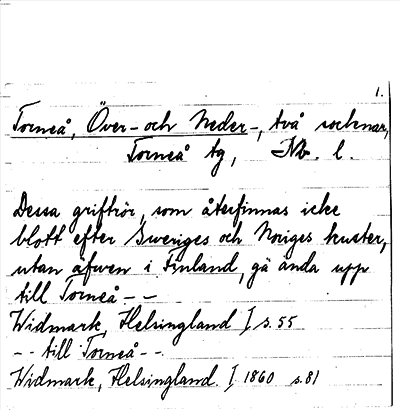 1.
Torneå, Över- och Neder-, två socknar,
Torneå tg, Nb. l.
Dessa griftrör, som återfinnas icke
blott efter Sveriges och Norges kuster,
utan äfven i Finland, gå ända upp
till Torneå - -
Widmark, Helsingland I s. 55
- - till Torneå - -
Widmark, Helsingland. I, 1860 s. 81